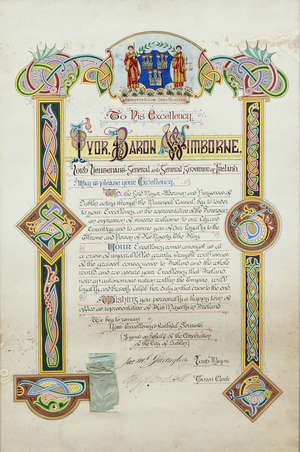 To His Excellency,
Ivor, Baron Wimborne.
Lord Lieutenant-General and General Governor of Ireland.
May it please your Excellency,
We, the Lord Mayor, Aldermen and Burgesses of
Dublin acting through the Municipal Council, beg to tender
to your Excellency, as the representative of the Sovereign
an expression of welcome to our City and
Country, and to assure you of our loyalty to the
Throne and Person of His Majesty the King.
Your Excellency comes amongst us at
a crisis of Imperial
of the gravest consequence to Ireland and the whole
world and we assure your Excellency that Ireland,
now an autonomous nation within the Empire, will
loyally, and bravely fulfil her duty to that Empire to the end.
Wishing you personally a happy term of
office as representative of His Majesty in Ireland.
We beg to remain
Your Excellency's faithful Servants
(Signed on behalf of the Corporation
of the City of Dublin)
Lord Mayor
Town Clerk